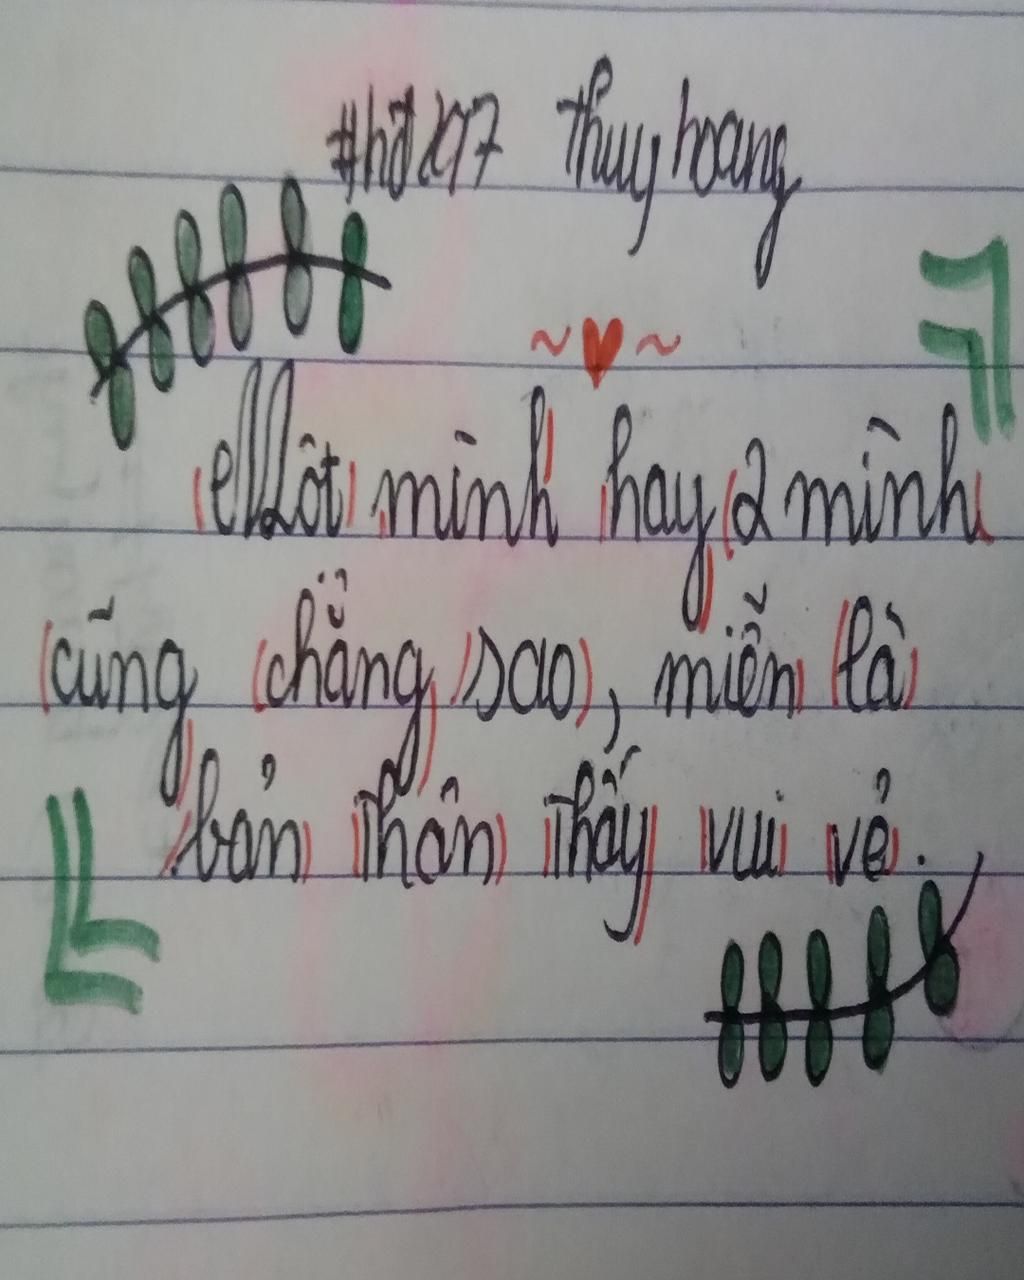 thuy hoang
Một mình hay 2 mình
cũng chẳng sao, miễn là
bản thân thấy vui vẻ.